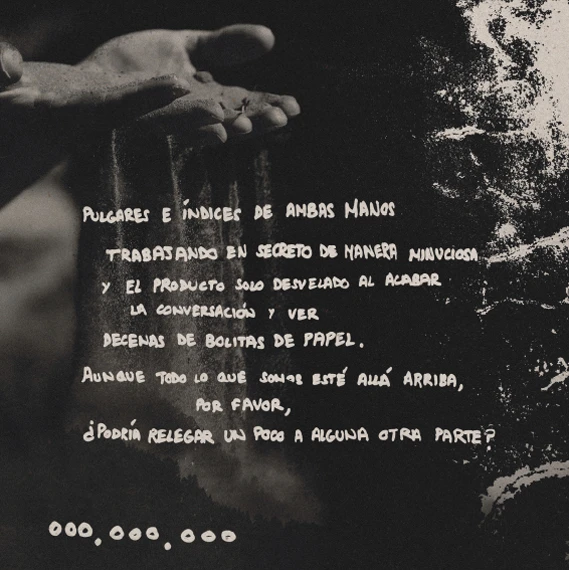 PULGARES E ÍNDICES DE AMBAS MANOS
TRABAJANDO EN SECRETO DE MANERA MINUCIOSA
Y EL PRODUCTO SOLO DESVELADO AL ACABAR
LA CONVERSACIÓN Y VER
DECENAS DE BOLITAS DE PAPEL.
AUNQUE TODO LO QUE SOMOS ESTÉ ALLÁ ARRIBA,
POR FAVOR,
¿PODRÍA RELEGAR UN POCO A ALGUNA OTRA PARTE?
000,000,000